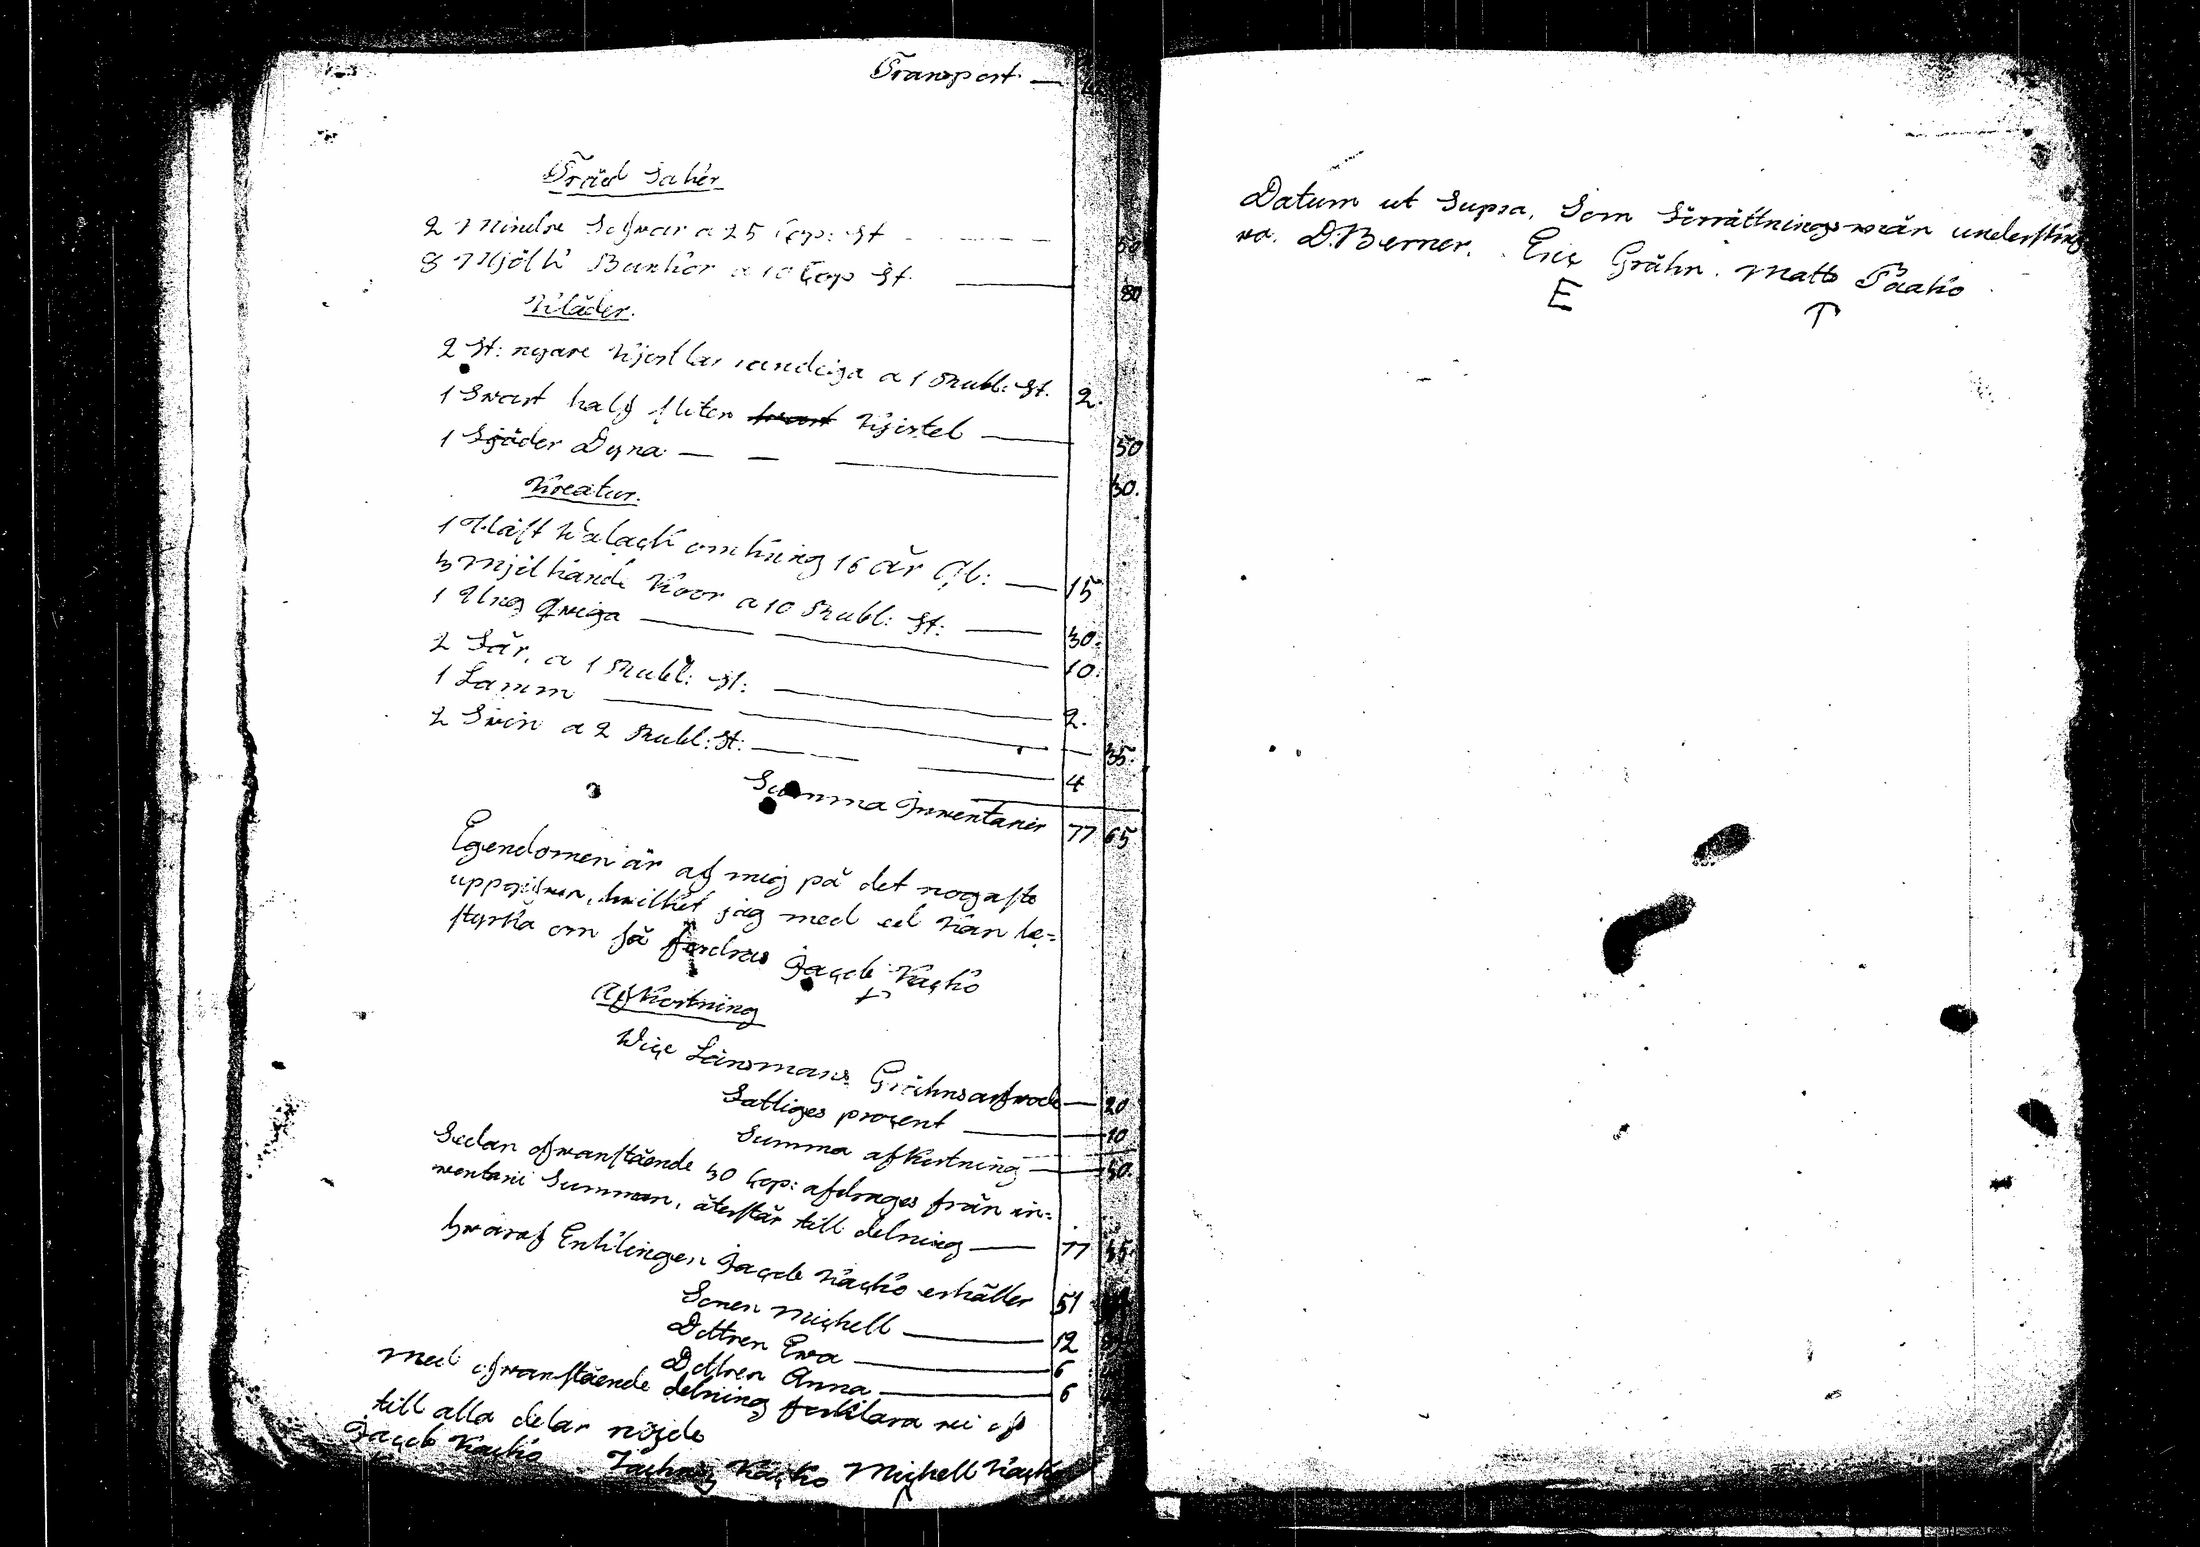 Transport —
Träd Saker
2 Mindre Sågwar a 25 Cop: St — 50
8 Mjölk Bunkor a 10 Cop St — 80
Kläder.
2 St: nyare Kjortlar randiga a 1 Rubl: St. 2.
1 Swart half sliten Kjortel — 50
1 Fjäder Dyna — — — 30.
Kreatur.
1 Häst Walack omkring 16 år Gl: — 15
3 Mjölkande Koor a 10 Rubl: St: — 30.
1 Ung Qwiga — 10.
2 Får, a 1 Rubl: St: — 2.
1 Lamm — 35.
2 Swin a 2 Rubl: St: — 4
Summa Inwentarier 77 65
Egendomen är af mig på det nogaste
uppgifwen, hwilket jag med ed kan be=
styrka om så fordras Jacob Kacko
Afkortning
Wice Länsmans Gråhns arfwode — 20
Fattiges procent — 10
Summa afkortning — 30.
Sedan ofwanstående 30 Cop: afdrages från in=
wentarii Summan, återstår till delning — 77 35.
hwaraf Enklingen Jacob Kacko erhåller 51
Sonen Michell — 12
Dottren Ewa — 6
Dottren Anna — 6
Med ofwanstående delning förklara wi oss
till alla delar nöjde
Jacob Kacko Kacko Michell Kacko
Datum ut Supra, Som förrättningsmän underskrif
wa. D. Berner. Eric Gråhn. Matts Paako
E